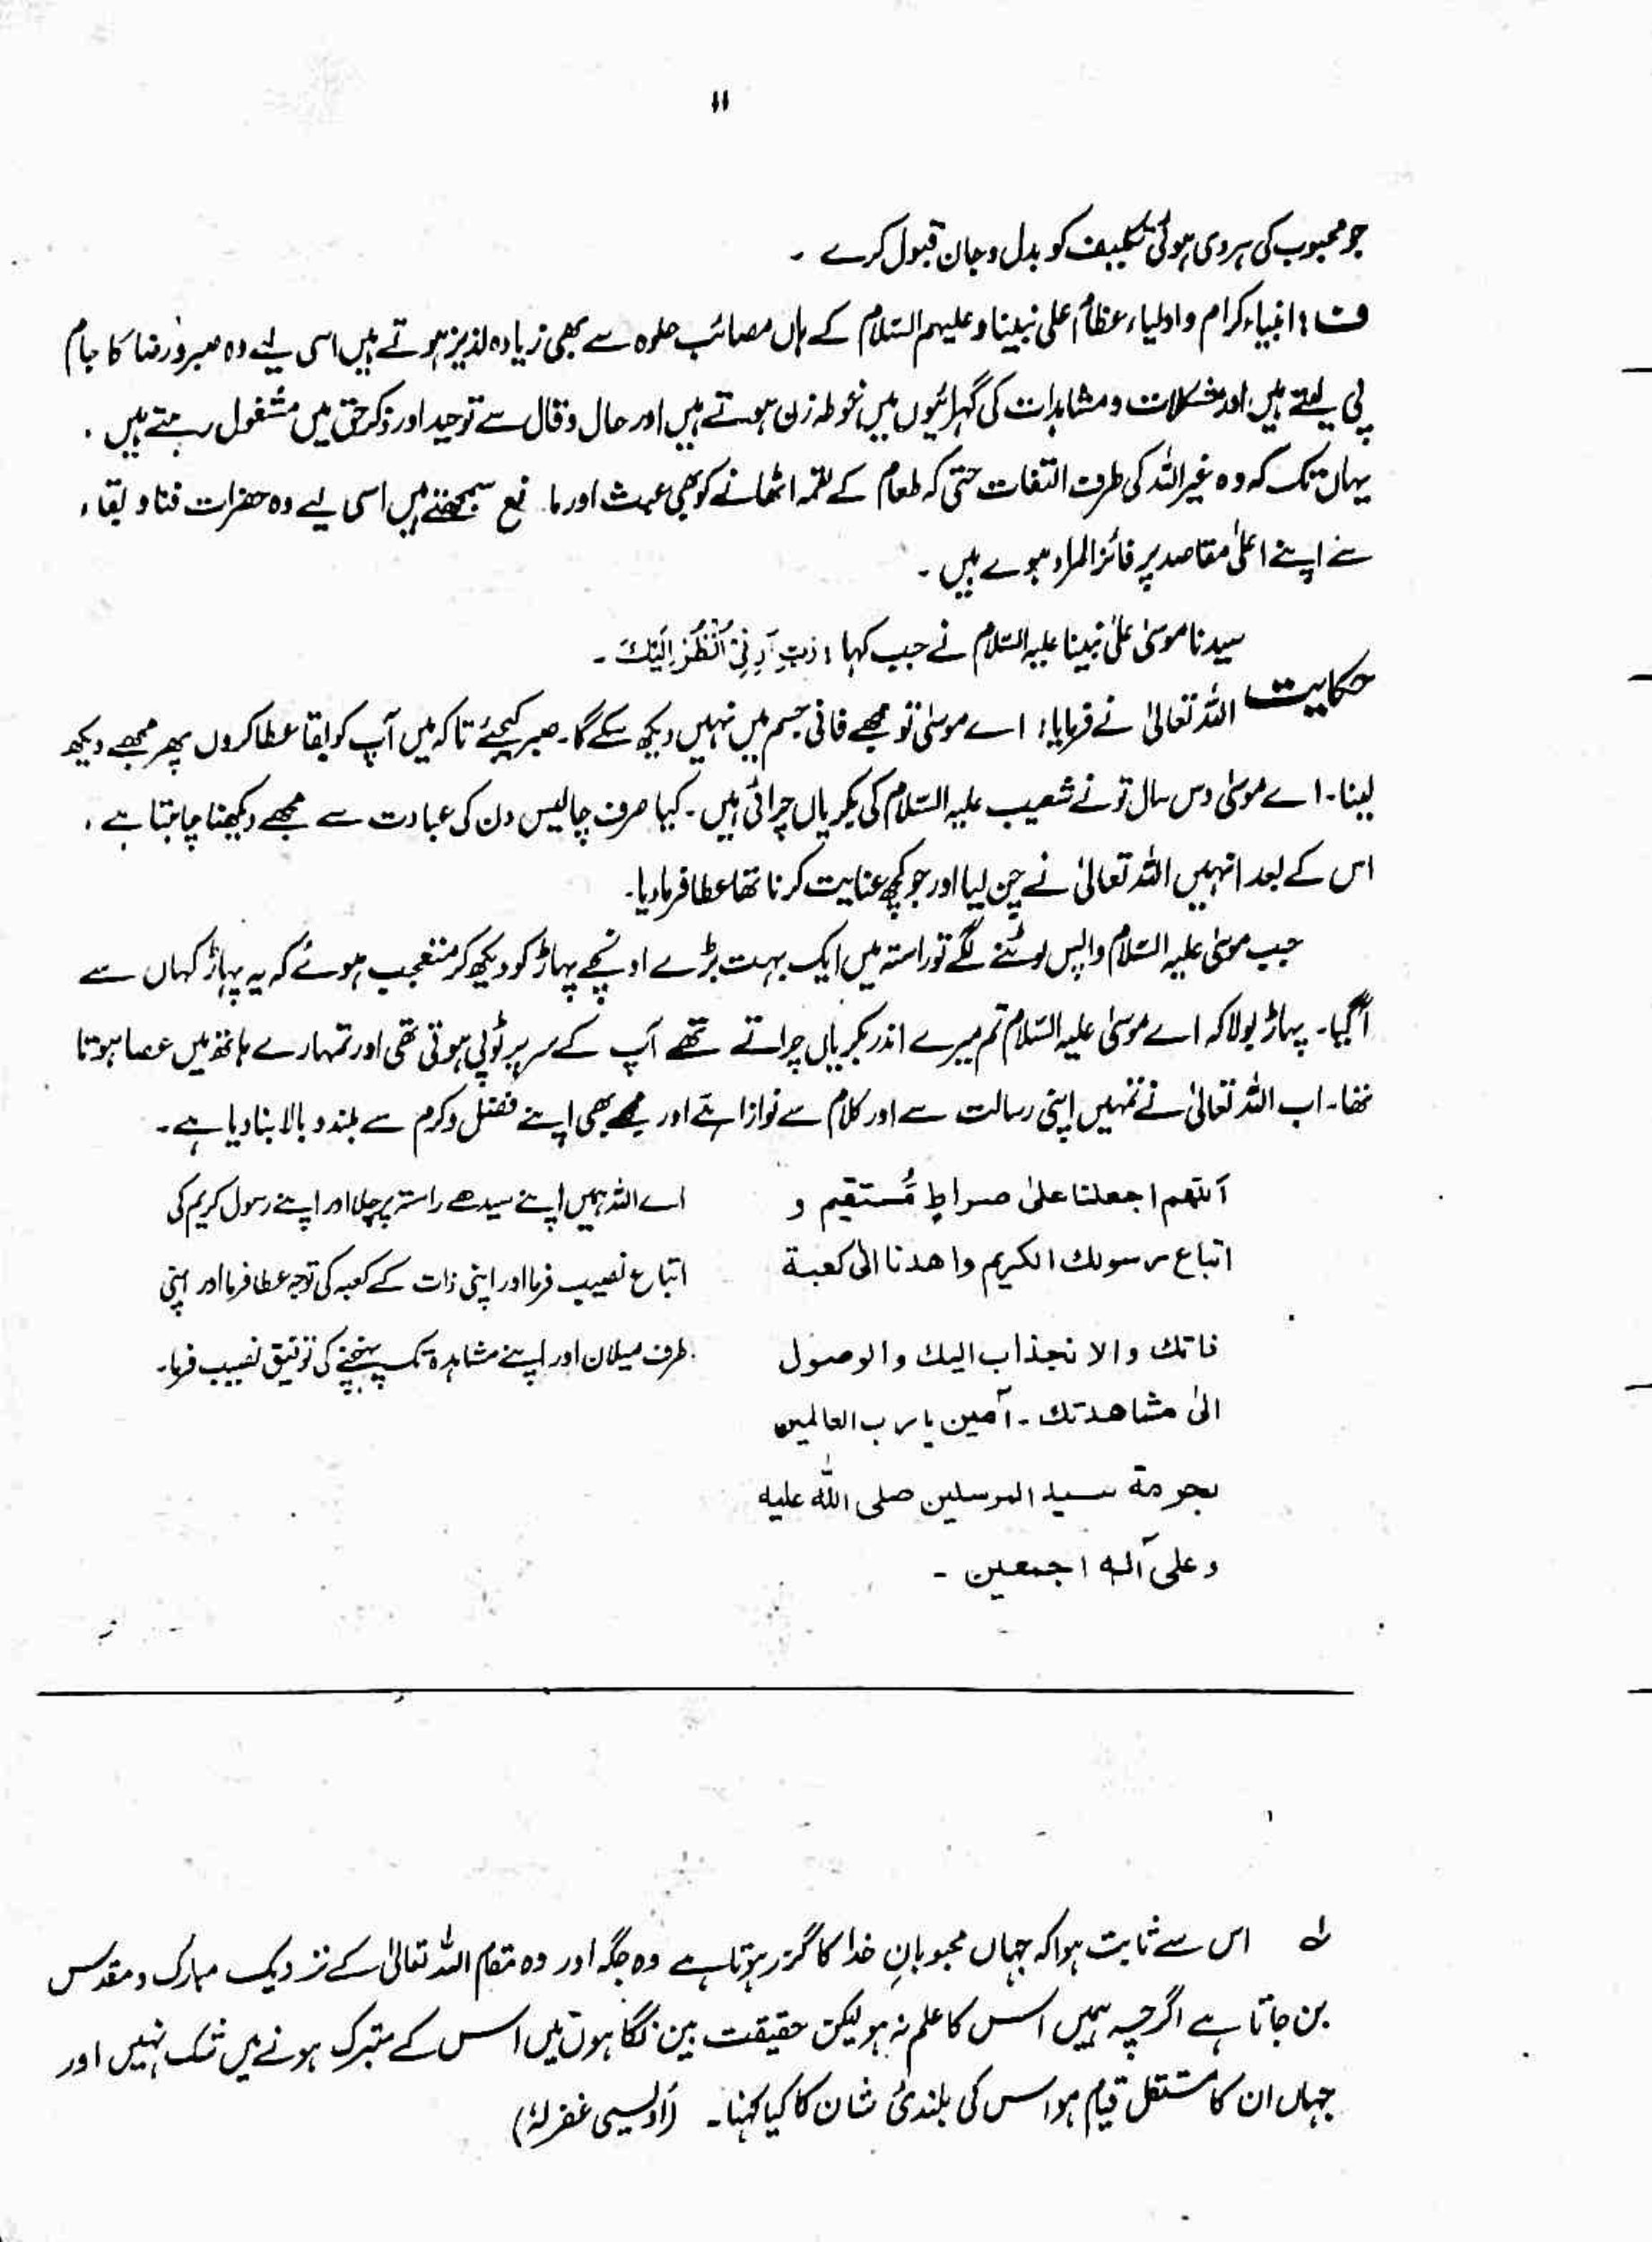 ۱۱
جو محبوب کی ہر دی ہوئی تکلیف کو بدل و جان قبول کرے ۔
ف : انبیاء کرام و اولیاء عظام علی نبینا و علیہم السّلام کے ہاں مصائب حلوہ سے بھی زیادہ لذیز ہوتے ہیں اسی لیے وہ صبر و رضا کا جام
پی لیتے ہیں اور مشکلات و مشاہدات کی گہرائیوں میں غوطہ زن ہوتے ہیں اور حال و قال سے توحید اور ذکر حق میں مشغول رہتے ہیں ۔
یہاں تک کہ وہ غیر اللہ کی طرف التفات حتی کہ طعام کے لقمہ اٹھانے کو بھی عبث اور مانع سمجھتے ہیں اسی لیے وہ حضرات فنا و بقاء
سے اپنے اعلیٰ مقاصد پر فائز المرام ہوے ہیں ۔
سیدنا موسیٰ علیٰ نبینا علیہ السّلام نے جب کہا : رَبِّ اَرِنِیْ اَنْظُرْ اِلَیْكَ ۔
حکایت اللہ تعالیٰ نے فرمایا : اے موسیٰ تو مجھے فانی جسم میں نہیں دیکھ سکے گا ۔ صبر کیجئے تاکہ میں آپ کو بقا عطا کروں پھر مجھے دیکھ
لینا ۔ اے موسیٰ دس سال تو نے شعیب علیہ السّلام کی بکریاں چرائی ہیں ۔ کیا صرف چالیس دن کی عبادت سے مجھے دیکھنا چاہتا ہے ،
اس کے بعد انہیں اللہ تعالیٰ نے چن لیا اور جو کچھ عنایت کرنا تھا عطا فرما دیا ۔
جب موسیٰ علیہ السّلام واپس لوٹنے لگے تو راستہ میں ایک بہت بڑے اونچے پہاڑ کو دیکھ کر متعجب ہوئے کہ یہ پہاڑ کہاں سے
آگیا ۔ پہاڑ بولا کہ اے موسیٰ علیہ السّلام تم میرے اندر بکریاں چراتے تھے آپ کے سر پر ٹوپی ہوتی تھی اور تمہارے ہاتھ میں عصا ہوتا
تھا ۔ اب اللہ تعالیٰ نے تمہیں اپنی رسالت سے اور کلام سے نوازا ہے اور مجھے بھی اپنے فضل و کرم سے بلند و بالا بنا دیا ہے ۔
اَللّٰهم اجعلنا علیٰ صراطٍ مُّستقیم و
اتباع رسولك الكريم واهدنا الیٰ كعبة
ذاتك والانجذاب اليك والوصول
الیٰ مشاهدتك ۔ آمين يا رب العالمين
بحرمة سيد المرسلين صلى الله عليه
وعلى آله اجمعين ۔
اے اللہ ہمیں اپنے سیدھے راستہ پر چلا اور اپنے رسول کریم کی
اتباع نصیب فرما اور اپنی ذات کے کعبہ کی توجہ عطا فرما اور اپنی
طرف میلان اور اپنے مشاہدہ تک پہنچنے کی توفیق نصیب فرما ۔
لہ اس سے ثابت ہوا کہ جہاں محبوبانِ خدا کا گزر ہوتا ہے وہ جگہ اور وہ مقام اللہ تعالیٰ کے نزدیک مبارک و مقدس
بن جاتا ہے اگرچہ ہمیں اس کا علم نہ ہو لیکن حقیقت بین نگاہوں میں اس کے متبرک ہونے میں شک نہیں اور
جہاں ان کا مستقل قیام ہو اس کی بلندیٔ شان کا کیا کہنا ۔ (اُویسی غفرلہٗ)